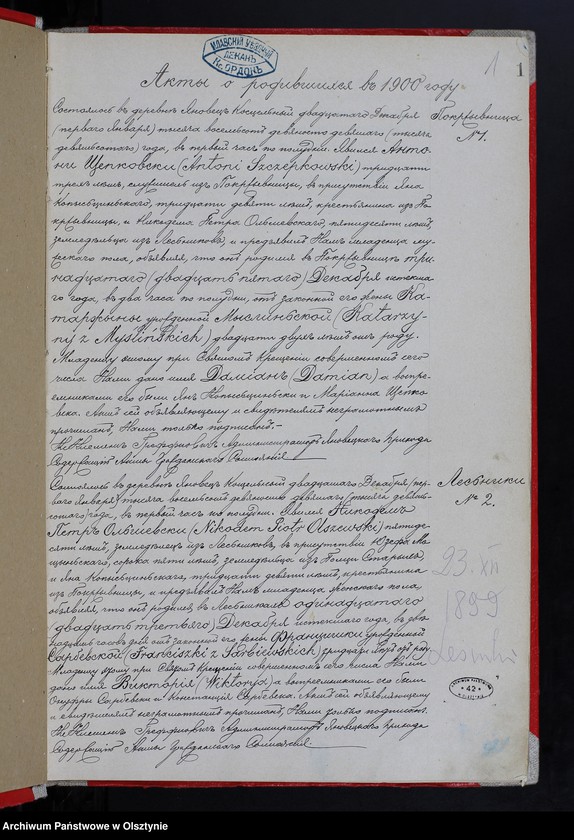 МЛАВСКІЙ УѢЗДНЫЙ
ДЕКАНЪ
Кс. ОРДОНЪ
1
1
Акты о родившихся въ 1900 году
Состоялось въ деревнѣ Яновец Косцельный двадцатаго Декабря
(перваго Января) тысяча восемьсотъ девяносто девятаго (тысяча
девятьсотаго) года, въ первый часъ по полудни. Явился Анто-
ни Щепковски (Antoni Szczepkowski) тридцати
трехъ лѣтъ, служитель изъ Покрживницы, въ присутствіи Яна
тридцати девяти лѣтъ, крестьянина изъ По-
крживницы, и Никодема Петра Ольшевскаго, пятидесяти лѣтъ,
земледѣльца изъ и предъявилъ Намъ младенца му-
жескаго пола, объявляя, что онъ родился въ Покрживницѣ три-
надцатаго (двадцать пятаго) Декабря истекша-
го года, въ два часа по полудни, отъ законной его жены Ка-
таржины урожденной Мыслиньской (Katarzy-
ny z Myślińskich) двадцати двухъ лѣтъ отъ роду.
Младенцу этому при Святомъ Крещеніи совершенномъ сего
числа Нами дано имя Даміанъ (Damian) а воспре-
емниками его были Янъ и Маріанна Щепко-
вска. Актъ сей объявляющему и свидѣтелямъ неграмотнымъ
прочитанъ, Нами только подписанъ.-
Администраторъ Яновецкаго прихода
Содержащій Акты Гражданскаго Состоянія
Покрживница
№ 1.
Состоялось въ деревнѣ Яновец Косцельный двадцатаго Декабря (пер-
ваго Января) тысяча восемьсотъ девяносто девятаго (тысяча девять-
сотаго) года, въ первый часъ по полудни. Явился Никодемъ
Петръ Ольшевски (Nikodem Piotr Olszewski) пятиде-
сяти лѣтъ, земледѣлецъ изъ въ присутствіи Юзефа
сорока пяти лѣтъ, земледѣльца изъ
и Яна тридцати девяти лѣтъ, крестьянина
изъ Покрживницы, и предъявилъ Намъ младенца женскаго пола,
объявляя, что онъ родился въ одинадцатаго
(двадцать третьяго) Декабря истекшаго года, въ
часовъ дня отъ законной его жены Францишки урожденной
Сарбевской (Franciszki z Sarbiewskich) лѣтъ отъ роду.
Младенцу этому при Святомъ Крещеніи совершенномъ сего числа Нами
дано имя Викторія (Wiktorya) а воспреемниками его были
Сарбевски и Констанція Сарбевска. Актъ сей объявляющему
и свидѣтелямъ неграмотнымъ прочитанъ, Нами только подписанъ.
Администраторъ Яновецкаго прихода
Содержащій Акты Гражданскаго Состоянія.
№ 2.
23. XII
1899
42
Archiwum Państwowe w Olsztynie